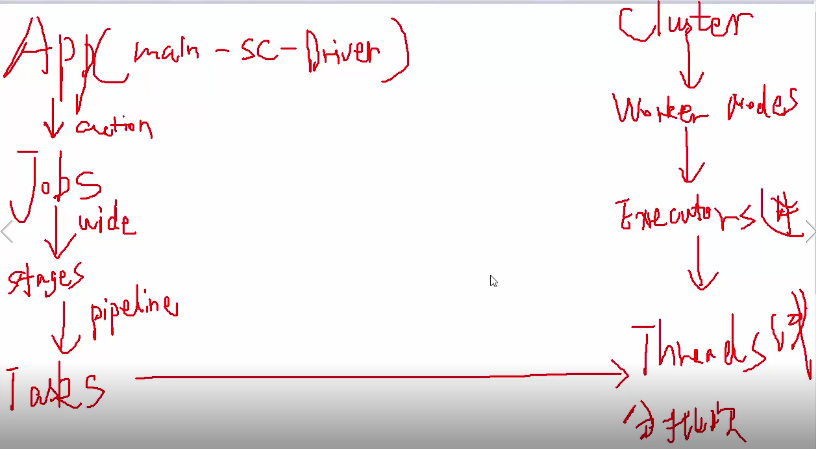 App(main-SC-Driver)
action
Jobs
wide
stages
pipeline
Tasks
Cluster
Worker nodes
Executors(进
Threads(线)
分批次